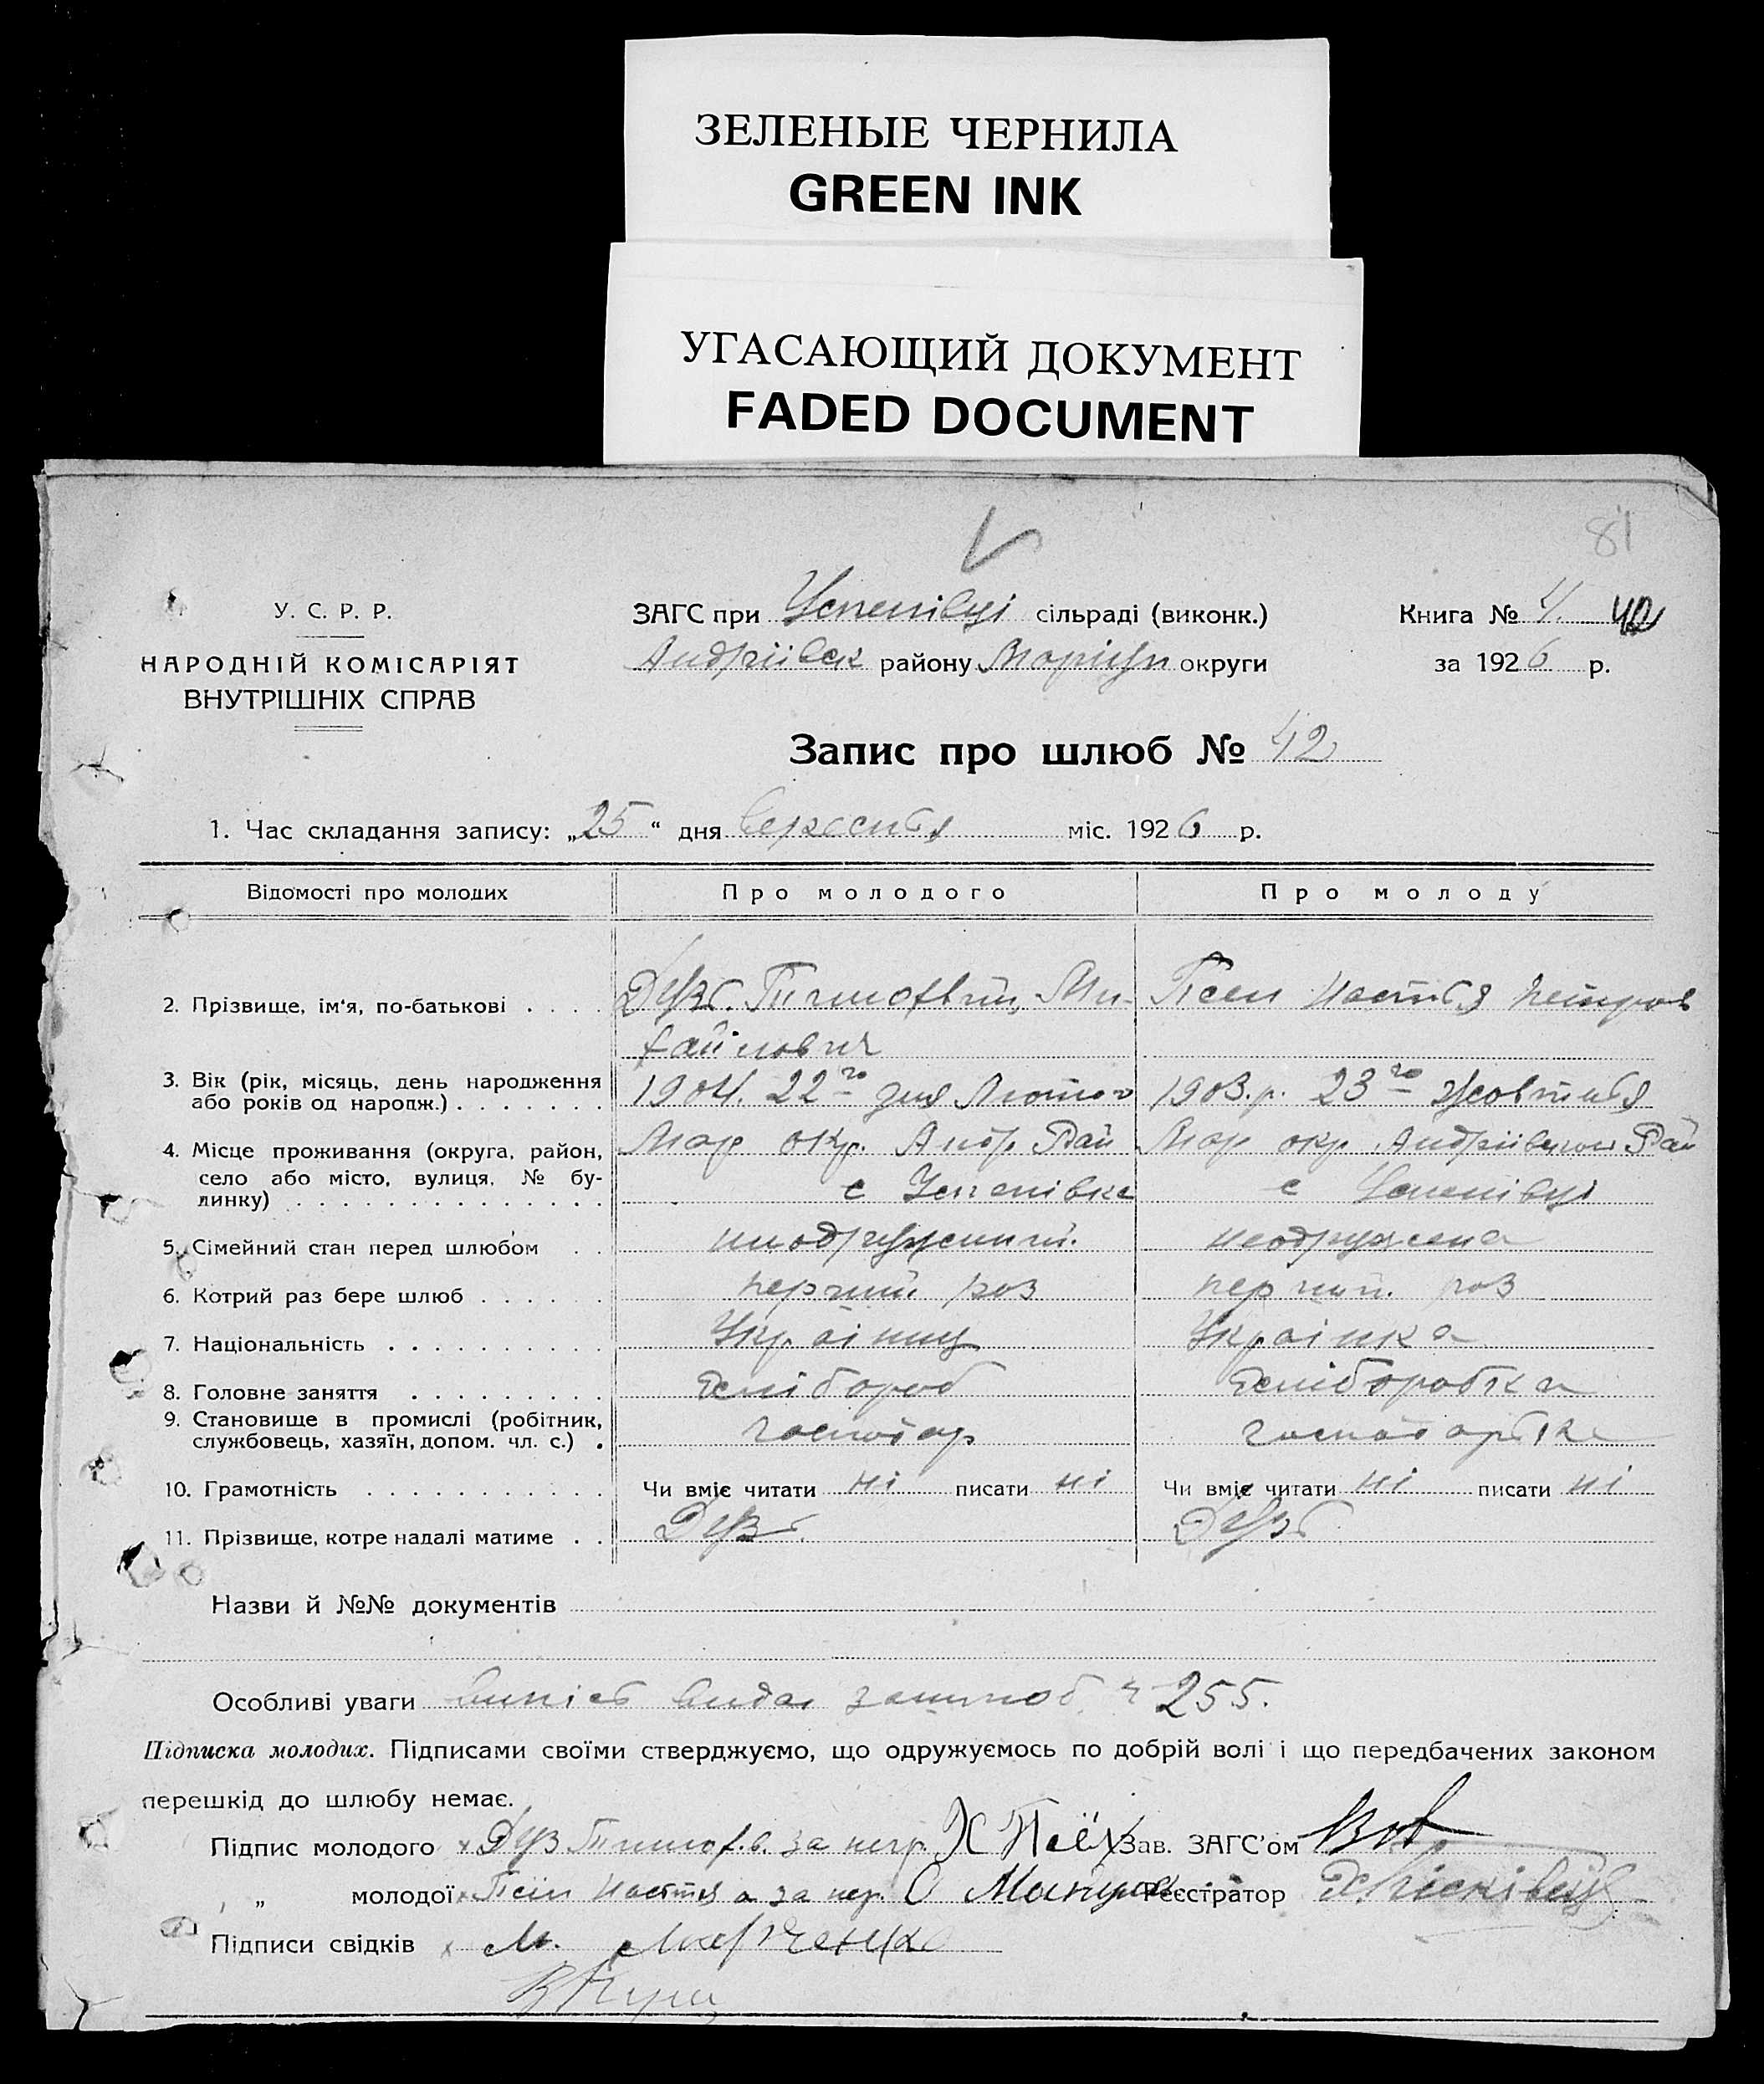 ЗЕЛЕНЫЕ ЧЕРНИЛА
GREEN INK
УГАСАЮЩИЙ ДОКУМЕНТ
FADED DOCUMENT
81
У. С. Р. Р.
НАРОДНІЙ КОМІСАРІЯТ
ВНУТРІШНІХ СПРАВ
ЗАГС при Успенівці сільраді (виконк.)
Андріївск району Маріуп округи
Книга № 4. 42
за 1926 р.
Запис про шлюб № 42
1. Час складання запису: „25“ дня вересня міс. 1926 р.
Відомості про молодих Про молодого Про молоду
2. Прізвище, ім'я, по-батькові . . . . Дузь. Тимофвій, Ми- Псел Настья Петров
хайлович
3. Вік (рік, місяць, день народження
або років од народж.) . . . . . . . 1904. 22го дня Лютого 1903.р. 23го Жовтня
4. Місце проживання (округа, район, Мар окр. Андр Рай Мар окр Рай
село або місто, вулиця, № бу- с Успенівка с Успенівці
динку) . . . . . . . . . . . . . .
5. Сімейний стан перед шлюбом . . неодружений. неодружена
6. Котрий раз бере шлюб . . . . . . перший раз перший раз
7. Національність . . . . . . . . . . Українц Українка
8. Головне заняття . . . . . . . . . хлібороб хліборобка
9. Становище в промислі (робітник,
службовець, хазяїн, допом. чл. с.) . господар
10. Грамотність . . . . . . . . . . . Чи вміє читати ні писати ні Чи вміє читати ні писати ні
11. Прізвище, котре надалі матиме . . Дузь. Дузь.
Назви й №№ документів
Особливі уваги випісь видан за 255.
Підписка молодих. Підписами своїми стверджуємо, що одружуємось по добрій волі і що передбачених законом
перешкід до шлюбу немає.
Підпис молодого х Дуз Тимоф.в. за негр. Х Зав. ЗАГС'ом
„ молодої х Настья а за нер. О Реєстратор
Підписи свідків х М. Марченко